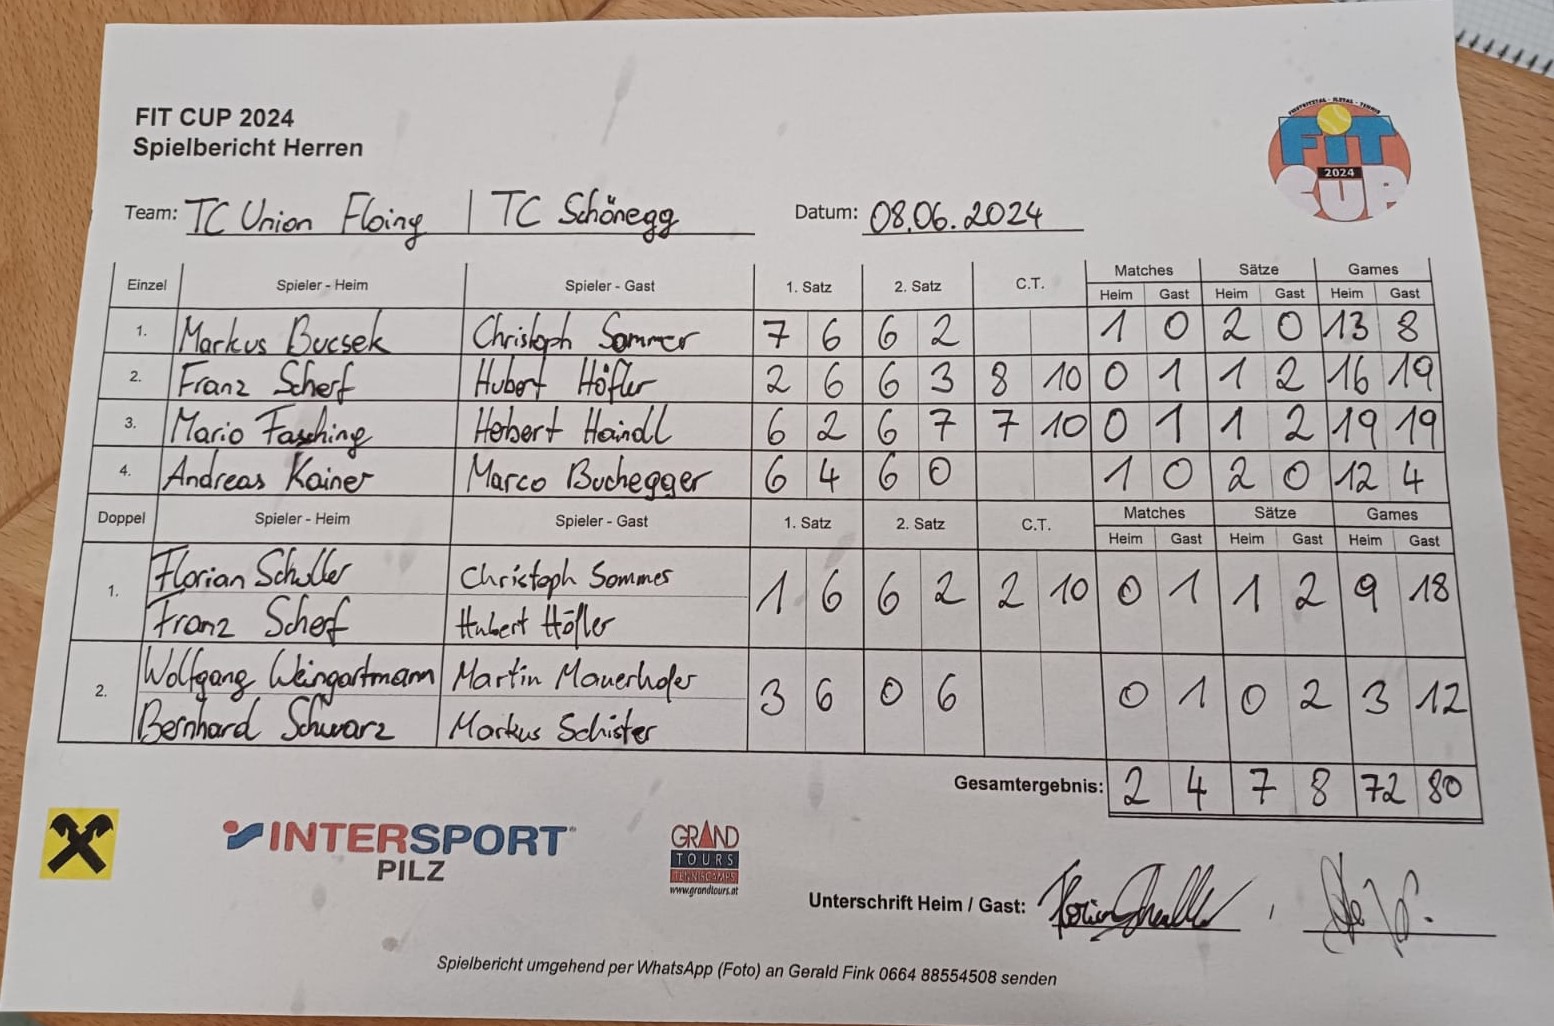 FIT CUP 2024
Spielbericht Herren
FIT
2024
CUP
Team: TC Union Floing | TC Schönegg Datum: 08.06.2024
Einzel Spieler - Heim Spieler - Gast 1. Satz 2. Satz C.T. Matches Sätze Games
Heim Gast Heim Gast Heim Gast
1. Markus Bucsek Christoph Sommer 7 6 6 2 1 0 2 0 13 8
2. Franz Scherf Hubert Höfler 2 6 6 3 8 10 0 1 1 2 16 19
3. Mario Fasching Herbert Haindl 6 2 6 7 7 10 0 1 1 2 19 19
4. Andreas Kainer Marco Buchegger 6 4 6 0 1 0 2 0 12 4
Doppel Spieler - Heim Spieler - Gast 1. Satz 2. Satz C.T. Matches Sätze Games
Heim Gast Heim Gast Heim Gast
Florian Schuller Christoph Sommer
1. 1 6 6 2 2 10 0 1 1 2 9 18
Franz Scherf Hubert Höfler
Wolfgang Weingartmann Martin Mauerhofer
2. 3 6 0 6 0 1 0 2 3 12
Bernhard Schwarz Markus Schister
Gesamtergebnis: 2 4 7 8 72 80
INTERSPORT
PILZ
GRAND
TOURS
TENNISCAMPS
www.grandtours.at
Unterschrift Heim / Gast:
Spielbericht umgehend per WhatsApp (Foto) an Gerald Fink 0664 88554508 senden